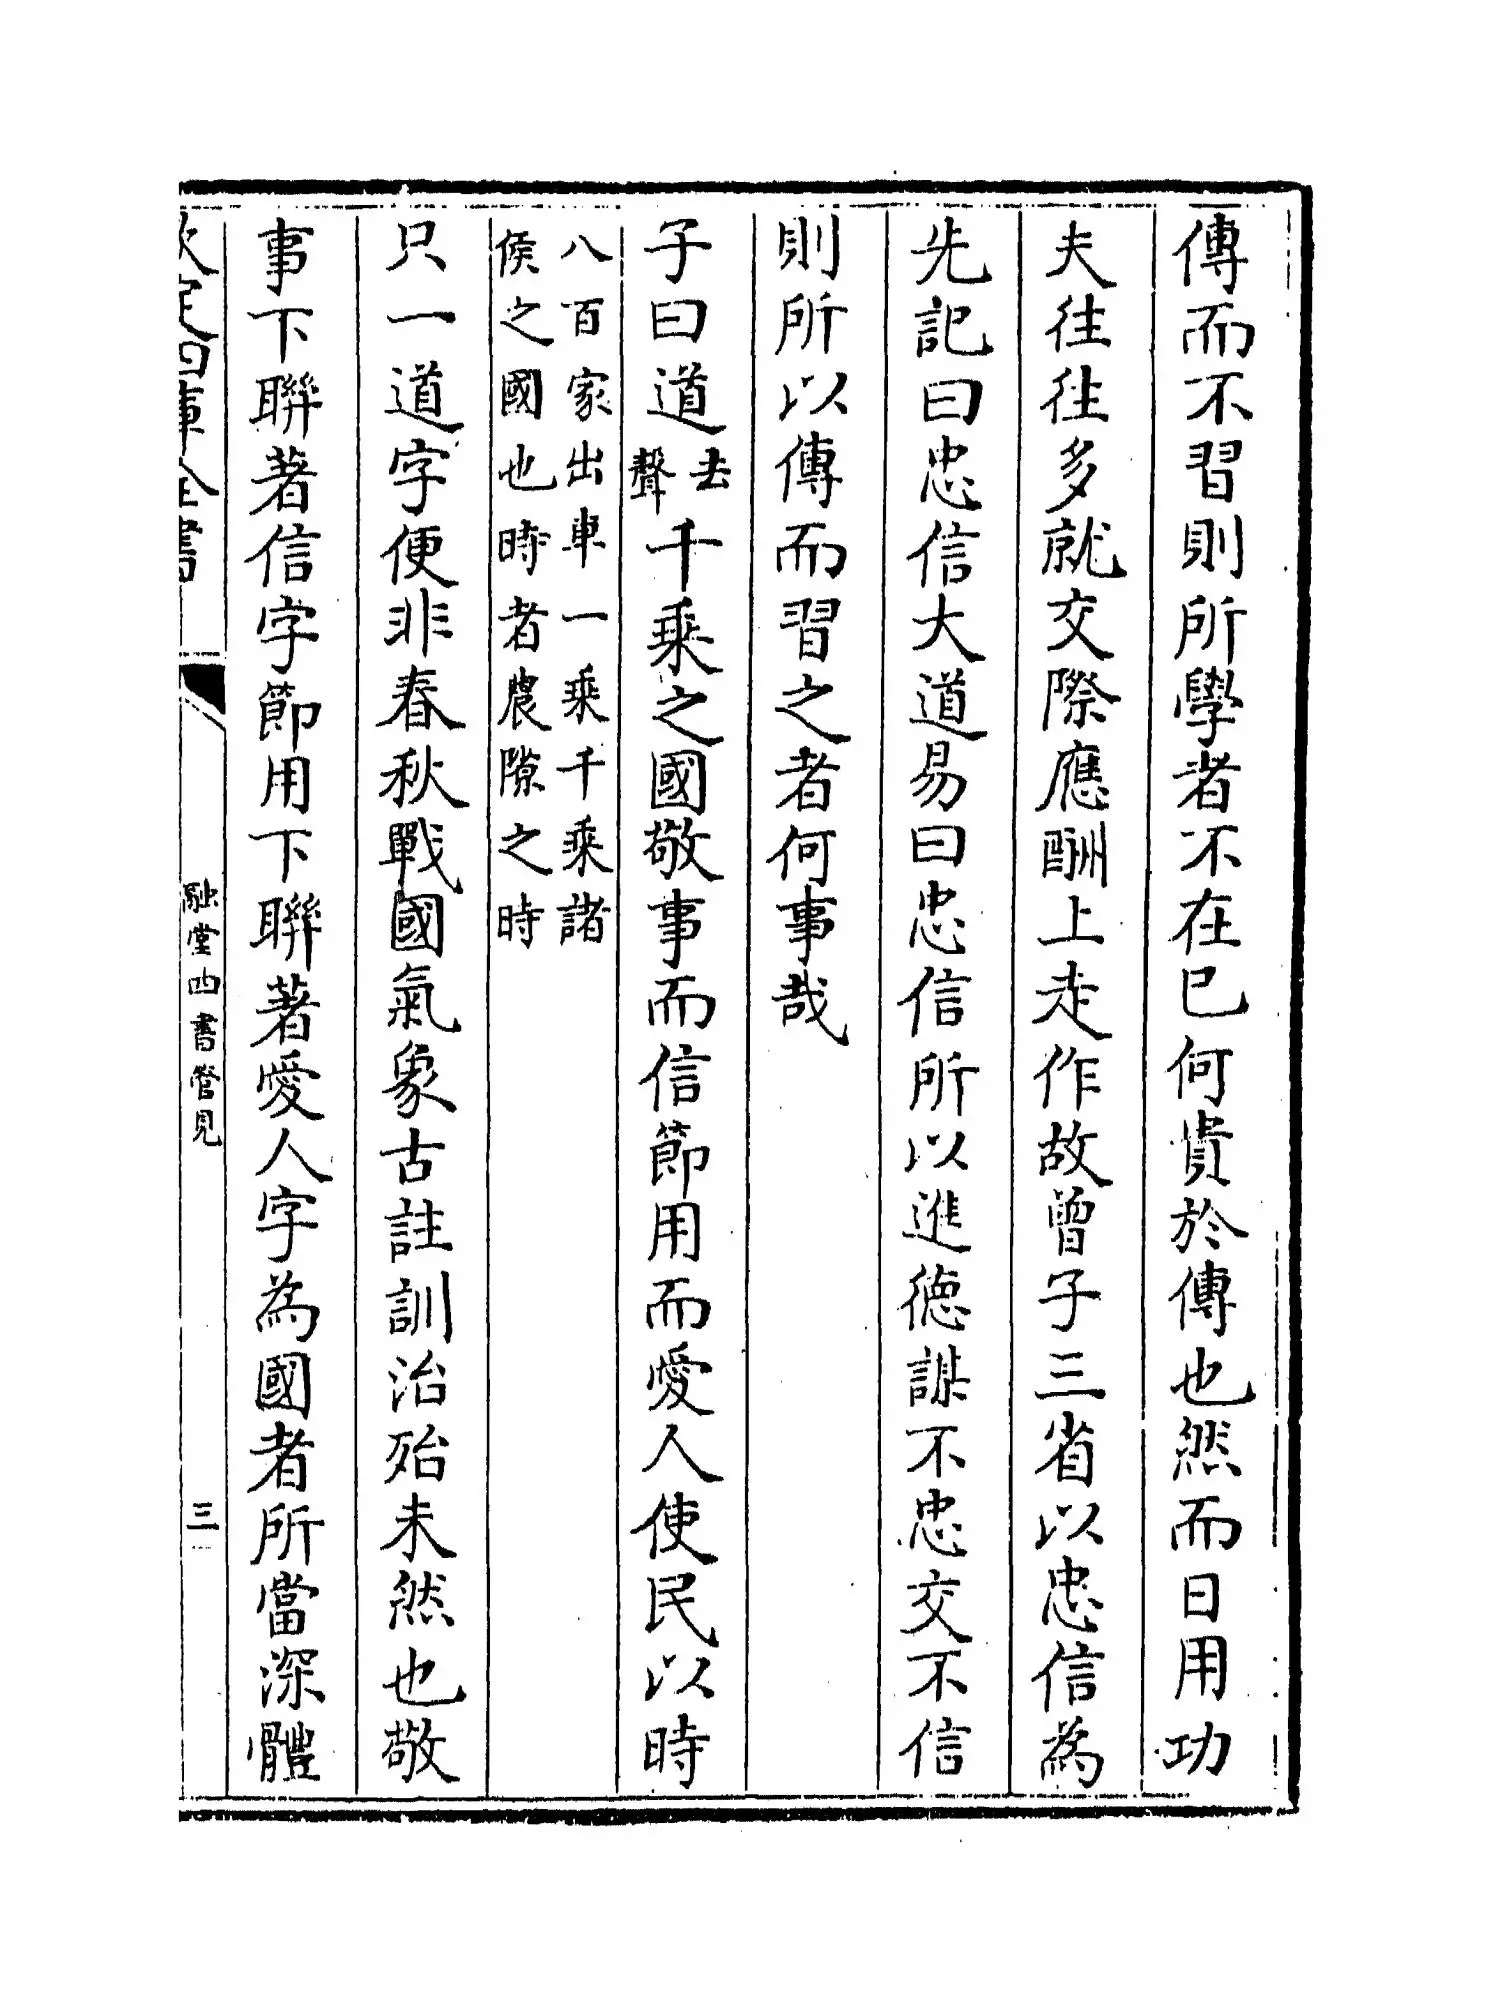 傳而不習則所學者不在已何貴於傳也然而日用功
夫往往多就交際應酬上走作故曾子三省以忠信為
先記曰忠信大道易曰忠信所以進德謀不忠交不信
則所以傳而習之者何事哉
子曰道去聲千乘之國敬事而信節用而愛人使民以時
八百家出車一乘千乘諸
侯之國也時者農隙之時
只一道字便非春秋戰國氣象古註訓治殆未然也敬
事下聯著信字節用下聯著愛人字為國者所當深體
欽定四庫全書
融堂四書管見
三